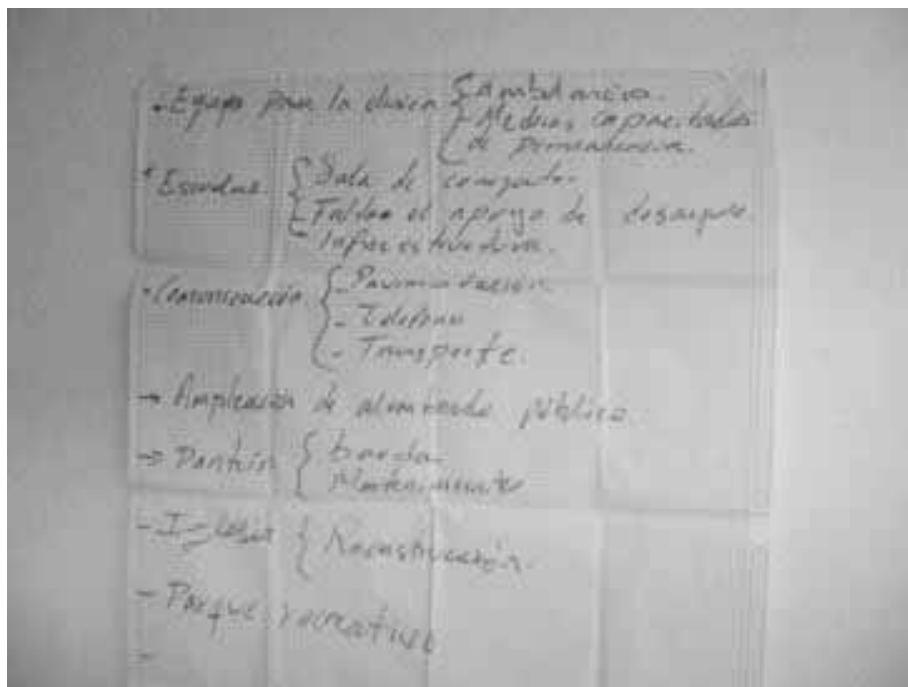 . Equipo para la clinica { Ambulancia.
- Medicos capacitados
de Permanencia.
* Escuelas { Sala de computo.
- Faltan el apoyo de desayuno.
Infraestructura.
. Comunicación { - Pavimentación
- Telefono
- Transporte.
→ Ampleación de alumbrado público.
→ Panteón { barda
Mantenimiento
- Iglesia { Reconstrucción.
- Parque recreativo
-